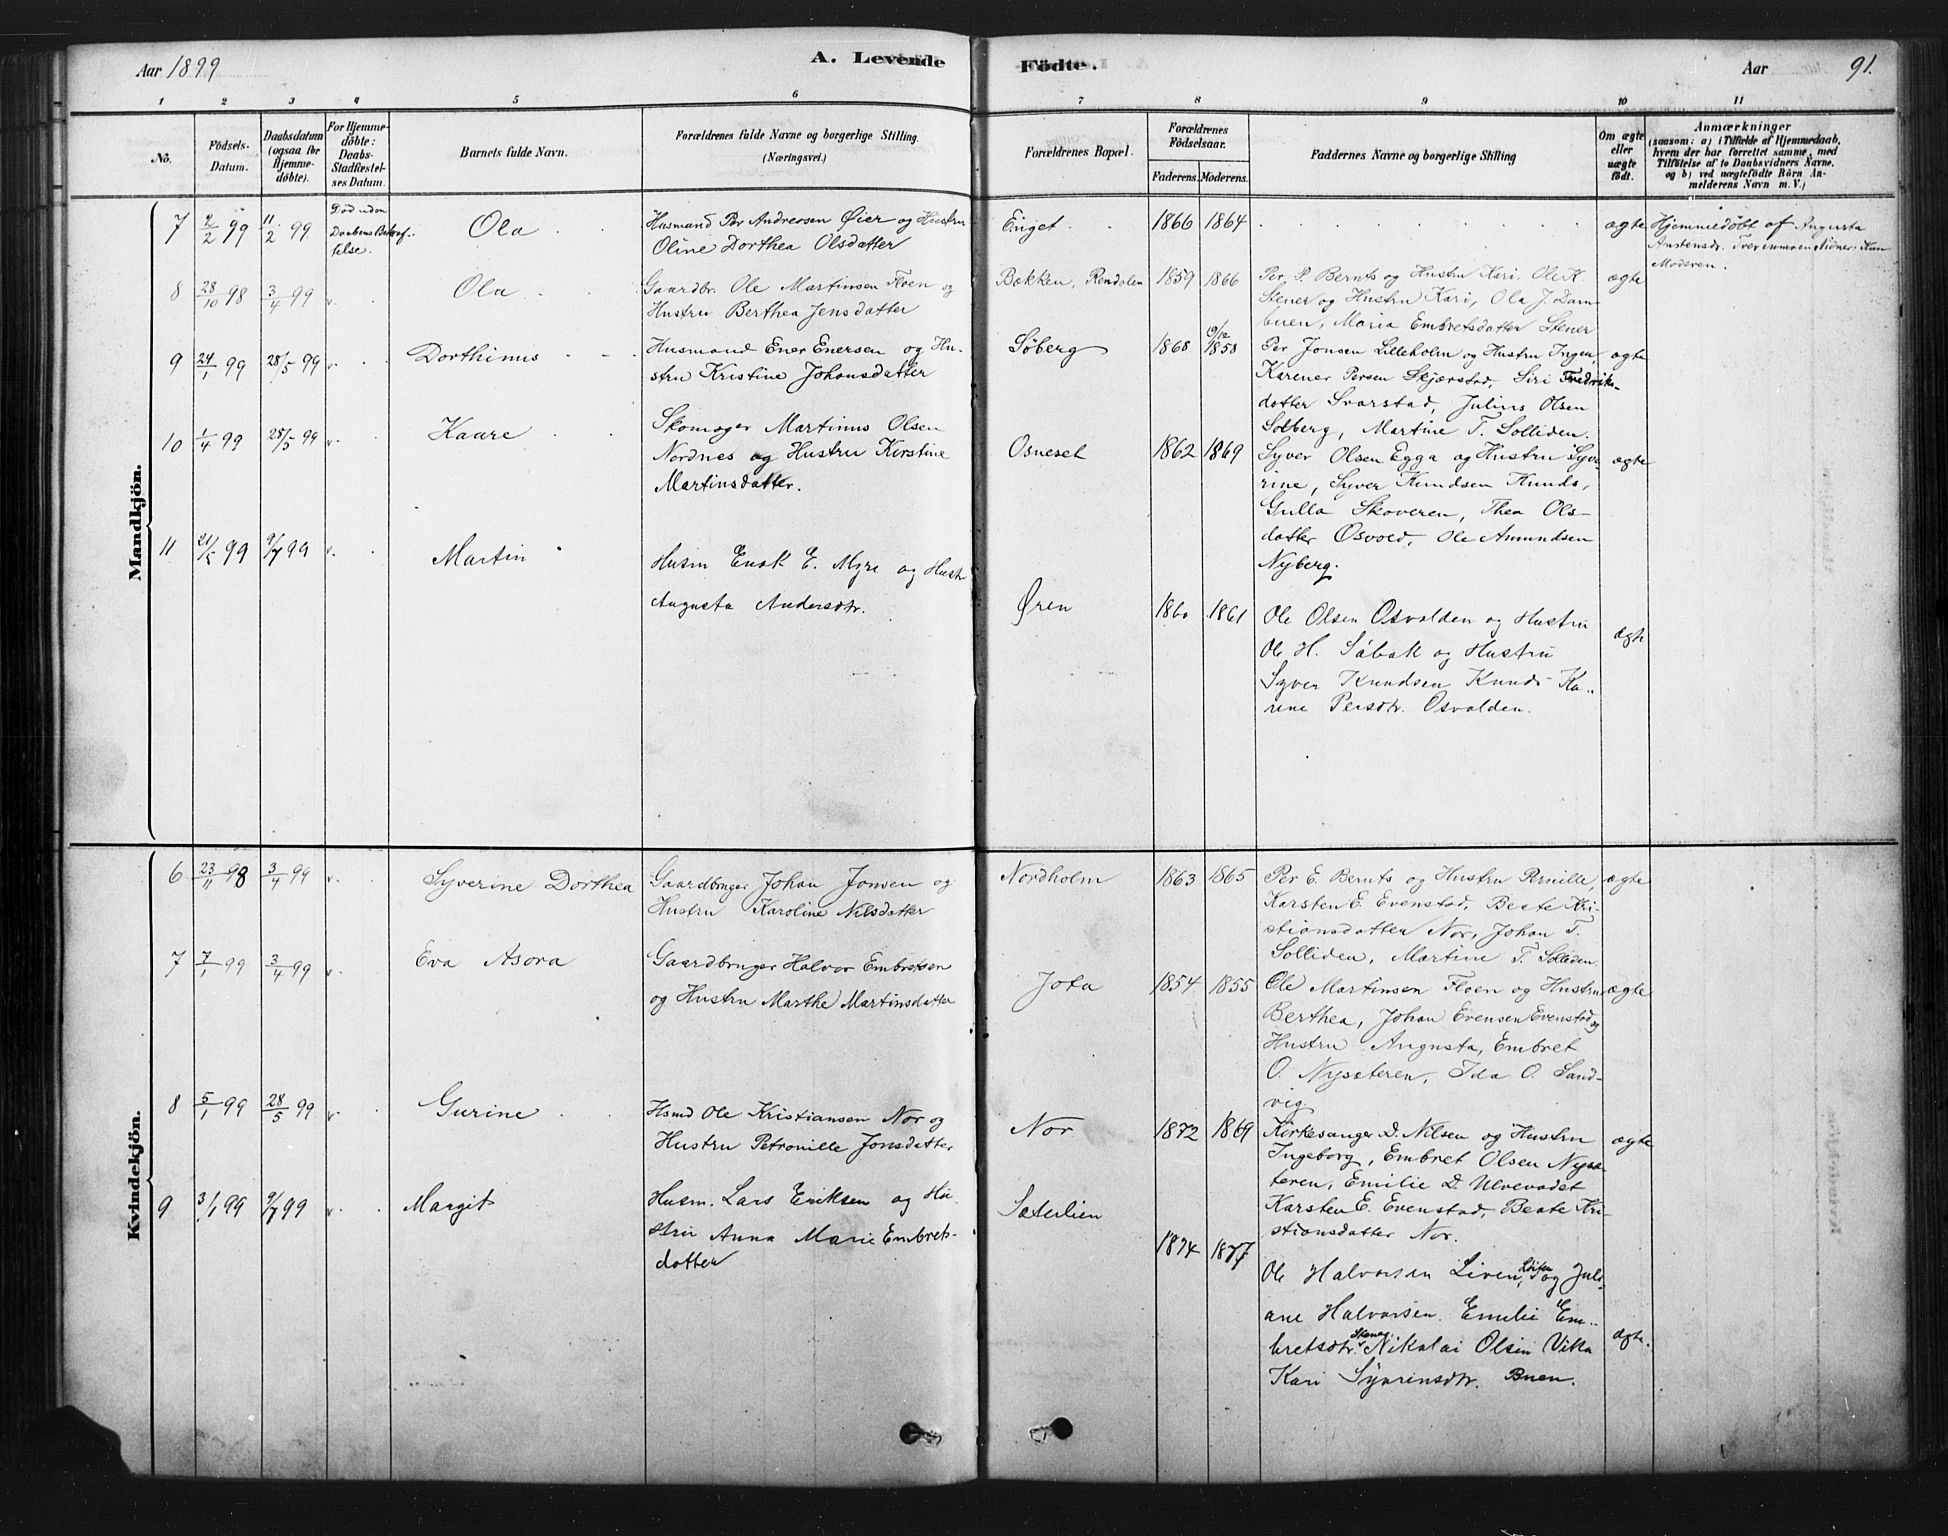 Aar 1899
A. Levende
Födte.
Aar
91.
1 2 3 4 5 6 7 8 9 10 11
No.
Födsels-
Datum.
Daabsdatum
(ogsaa for
Hjemme-
döbte).
For Hjemme-
döbte:
Daabs-
Stadfæstel-
ses Datum.
Barnets fulde Navn.
Forældrenes fulde Navne og borgerlige Stilling.
(Næringsvei.)
Forældrenes Bopæl.
Forældrenes
Födselsaar.
Faderens. Moderens.
Faddernes Navne og borgerlige Stilling
Om ægte
eller
uægte
födt.
Anmærkninger
(saasom: a) i Tilfælde af Hjemmedaab,
hvem der har forrettet samme, med
Tilföielse af to Daabsvidners Navne,
og b) ved uægtefödte Börn An-
melderens Navn m. V.)
Mandkjön.
7
2/2 99
11/2 99
Död uden
Daabens Bekræf-
telse.
Ola
Husmand Per Andreasen Øier og Hustru
Oline Dorthea Olsdatter
Enget
1866 1864
ægte
Hjemmedöbt af Augusta
Moderen.
8
28/10 98
3/4 99
Ola
Gaardbr. Ole Martinsen Floen og
Hustru Berthea Jensdatter
Bakken, Rendalen
1859 1866
Per P. Bernts og Hustru Kari, Ole K.
Stener og Hustru Kari, Ola J. Dam-
buen, Maria Embretsdatter Stener
ægte
9
24/1 99
28/5 99
Dorthinus
Husmand Ener Enersen og Hu-
stru Kristine Johansdatter
Söberg
1868
19/12 1858
Per Jonsen Lilleholm og Hustru Ingen
Karener Persen Skjærstad, Siri Fredriks-
datter Svarstad, Julius Olsen
Solberg, Martine T. Solliden.
ægte
10
1/4 99
28/5 99
Kaare
Skomager Martinus Olsen
Nordnes og Hustru Kirstine
Martinsdatter.
Osneset
1862 1869
Syver Olsen Egga og Hustru Syve-
rine, Syver Knudsen Knuds,
Gulla Skoveren, Thea Ols-
datter Osvold, Ole Amundsen
Nyberg.
ægte
11
21/5 99
9/7 99
Martin
Husm Enok E. Myre og Hustr
Augusta Andersdtr.
Øren
1860 1861
Ole Olsen Osvalden og Hustru
Ole H. Söbak og Hustru
Syver Knudsen Knuds Ka-
rine Persdtr. Osvalden.
ægte
Kvindekjön.
6
23/11 98
3/4 99
Syverine Dorthea
Gaardbruger Johan Jonsen og
Hustru Karoline Nilsdatter
Nordholm
1863 1865
Per E. Bernts og Hustru Pernille,
Karsten E. Evenstad, Beate Kri-
stiansdatter Nor, Johan T.
Solliden, Martine T. Solliden
ægte
7
7/1 99
3/4 99
Eva Asora
Gaardbruger Halvor Embretsen
og Hustru Marthe Martinsdatter
Jota
1854 1855
Ole Martinsen Floen og Hustru
Berthea, Johan Evensen Evenstad og
Hustru Augusta, Embret
O. Nysæteren, Ida O. Sand-
vig
ægte
8
5/1 99
28/5 99
Gurine
Hsmd Ole Kristiansen Nor og
Hustru Petronille Jonsdatter
Nor
1872 1869
Kirkesanger D. Nilsen og Hustru
Ingeborg, Embret Olsen Nysæ-
teren, Emilie D. Ulvevadet
Karsten E. Evenstad, Beate Kri-
stiansdatter Nor.
ægte
9
3/1 99
9/7 99
Margit
Husm. Lars Eriksen og Hu-
stru Anna Marie Embrets-
datter
Sæterlien
1874 1877
Ole Halvorsen Liven, og Juli-
ane Halvorsen. Emelie Em-
bretsdtr. Nikolai Olsen Vika
Kari Syverinsdtr. Buen.
ægte.